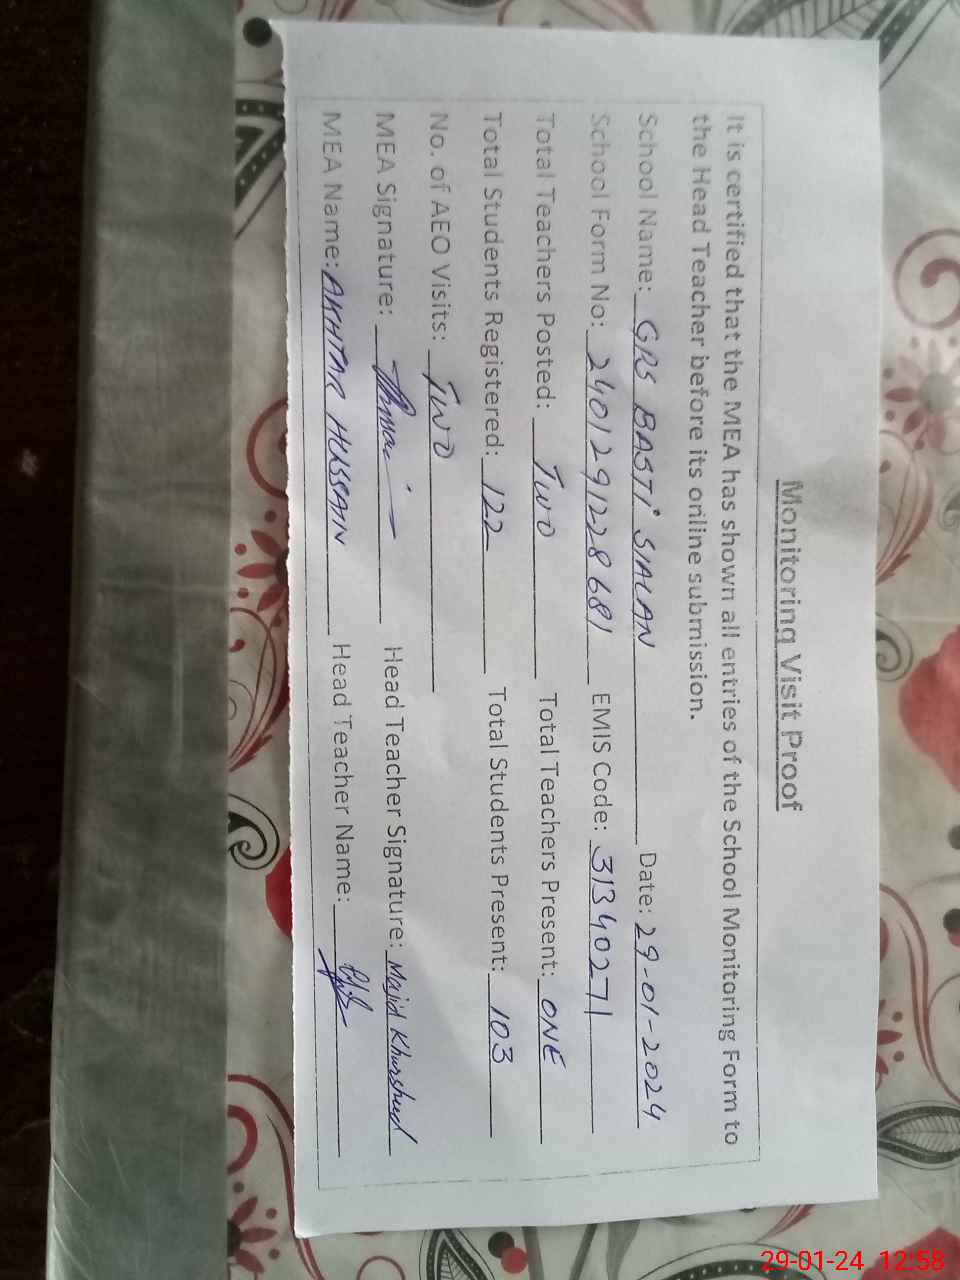 Monitoring Visit Proof
It is certified that the MEA has shown all entries of the School Monitoring Form to
the Head Teacher before its online submission.
School Name: GPS BASTI SIALAN Date: 29-01-2024
School Form No: 240129122868 1 EMIS Code: 31340271
Total Teachers Posted: TWO Total Teachers Present: ONE
Total Students Registered: 122 Total Students Present: 103
No. of AEO Visits: TWO
MEA Signature: Head Teacher Signature: Majid Khurshed
MEA Name: AKHTAR HUSSAIN Head Teacher Name:
29-01-24 12:58